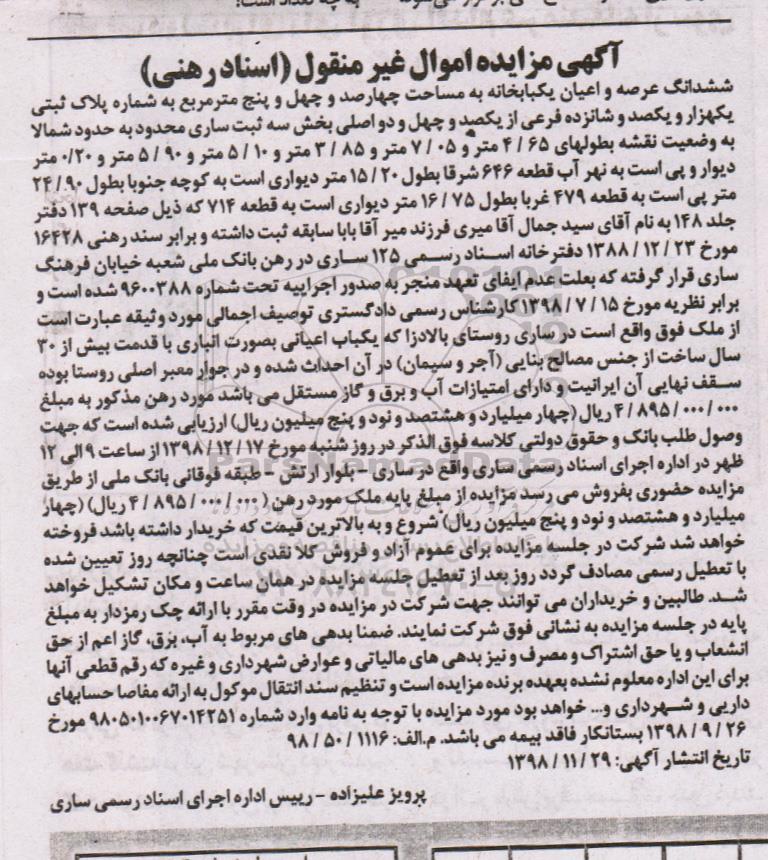 آگهی مزایده اموال غیر منقول (اسناد رهنی)
ششدانگ عرصه و اعیان یکبابخانه به مساحت چهارصد و چهل و پنج مترمربع به شماره پلاک ثبتی
یکهزار و یکصد و شانزده فرعی از یکصد و چهل و دو اصلی بخش سه ثبت ساری محدود به حدود شمالا
به وضعیت نقشه بطولهای ۴/۶۵ متر و ۷/۰۵ متر و ۳/۸۵ متر و ۵/۱۰ متر و ۵/۹۰ متر و ۰/۲۰ متر
دیوار و پی است به نهر آب قطعه ۶۴۶ شرقا بطول ۱۵/۲۰ متر دیواری است به کوچه جنوبا بطول ۲۴/۹۰
متر پی است به قطعه ۴۷۹ غربا بطول ۱۶/۷۵ متر دیواری است به قطعه ۷۱۴ که ذیل صفحه ۱۳۹ دفتر
جلد ۱۴۸ به نام آقای سید جمال آقا میری فرزند میر آقا بابا سابقه ثبت داشته و برابر سند رهنی ۱۶۴۲۸
مورخ ۱۳۸۸/۱۲/۲۳ دفترخانه اسناد رسمی ۱۲۵ ساری در رهن بانک ملی شعبه خیابان فرهنگ
ساری قرار گرفته که بعلت عدم ایفای تعهد منجر به صدور اجراییه تحت شماره ۹۶۰۰۳۸۸ شده است و
برابر نظریه مورخ ۱۳۹۸/۷/۱۵ کارشناس رسمی دادگستری توصیف اجمالی مورد وثیقه عبارت است
از ملک فوق واقع است در ساری روستای بالادزا که یکباب اعیانی بصورت انباری با قدمت بیش از ۳۰
سال ساخت از جنس مصالح بنایی (آجر و سیمان) در آن احداث شده و در جوار معبر اصلی روستا بوده
سقف نهایی آن ایرانیت و دارای امتیازات آب و برق و گاز مستقل می باشد مورد رهن مذکور به مبلغ
۴/۸۹۵/۰۰۰/۰۰۰ ریال (چهار میلیارد و هشتصد و نود و پنج میلیون ریال) ارزیابی شده است که جهت
وصول طلب بانک و حقوق دولتی کلاسه فوق الذکر در روز شنبه مورخ ۱۳۹۸/۱۲/۱۷ از ساعت ۹ الی ۱۲
ظهر در اداره اجرای اسناد رسمی ساری واقع در ساری - بلوار ارتش - طبقه فوقانی بانک ملی از طریق
مزایده حضوری بفروش می رسد مزایده از مبلغ پایه ملک مورد رهن (۴/۸۹۵/۰۰۰/۰۰۰ ریال) (چهار
میلیارد و هشتصد و نود و پنج میلیون ریال) شروع و به بالاترین قیمت که خریدار داشته باشد فروخته
خواهد شد شرکت در جلسه مزایده برای عموم آزاد و فروش کلا نقدی است چنانچه روز تعیین شده
با تعطیل رسمی مصادف گردد روز بعد از تعطیل جلسه مزایده در همان ساعت و مکان تشکیل خواهد
شد. طالبین و خریداران می توانند جهت شرکت در مزایده در وقت مقرر با ارائه چک رمزدار به مبلغ
پایه در جلسه مزایده به نشانی فوق شرکت نمایند. ضمنا بدهی های مربوط به آب، برق، گاز اعم از حق
انشعاب و یا حق اشتراک و مصرف و نیز بدهی های مالیاتی و عوارض شهرداری و غیره که رقم قطعی آنها
برای این اداره معلوم نشده بعهده برنده مزایده است و تنظیم سند انتقال موکول به ارائه مفاصا حسابهای
دارایی و شهرداری و... خواهد بود مورد مزایده با توجه به نامه وارد شماره ۹۸۰۵۰۱۰۰۶۷۰۱۴۲۵۱ مورخ
۱۳۹۸/۹/۲۶ بستانکار فاقد بیمه می باشد. م.الف: ۹۸/۵۰/۱۱۱۶
تاریخ انتشار آگهی: ۱۳۹۸/۱۱/۲۹
پرویز علیزاده - رییس اداره اجرای اسناد رسمی ساری
ParsNamadData